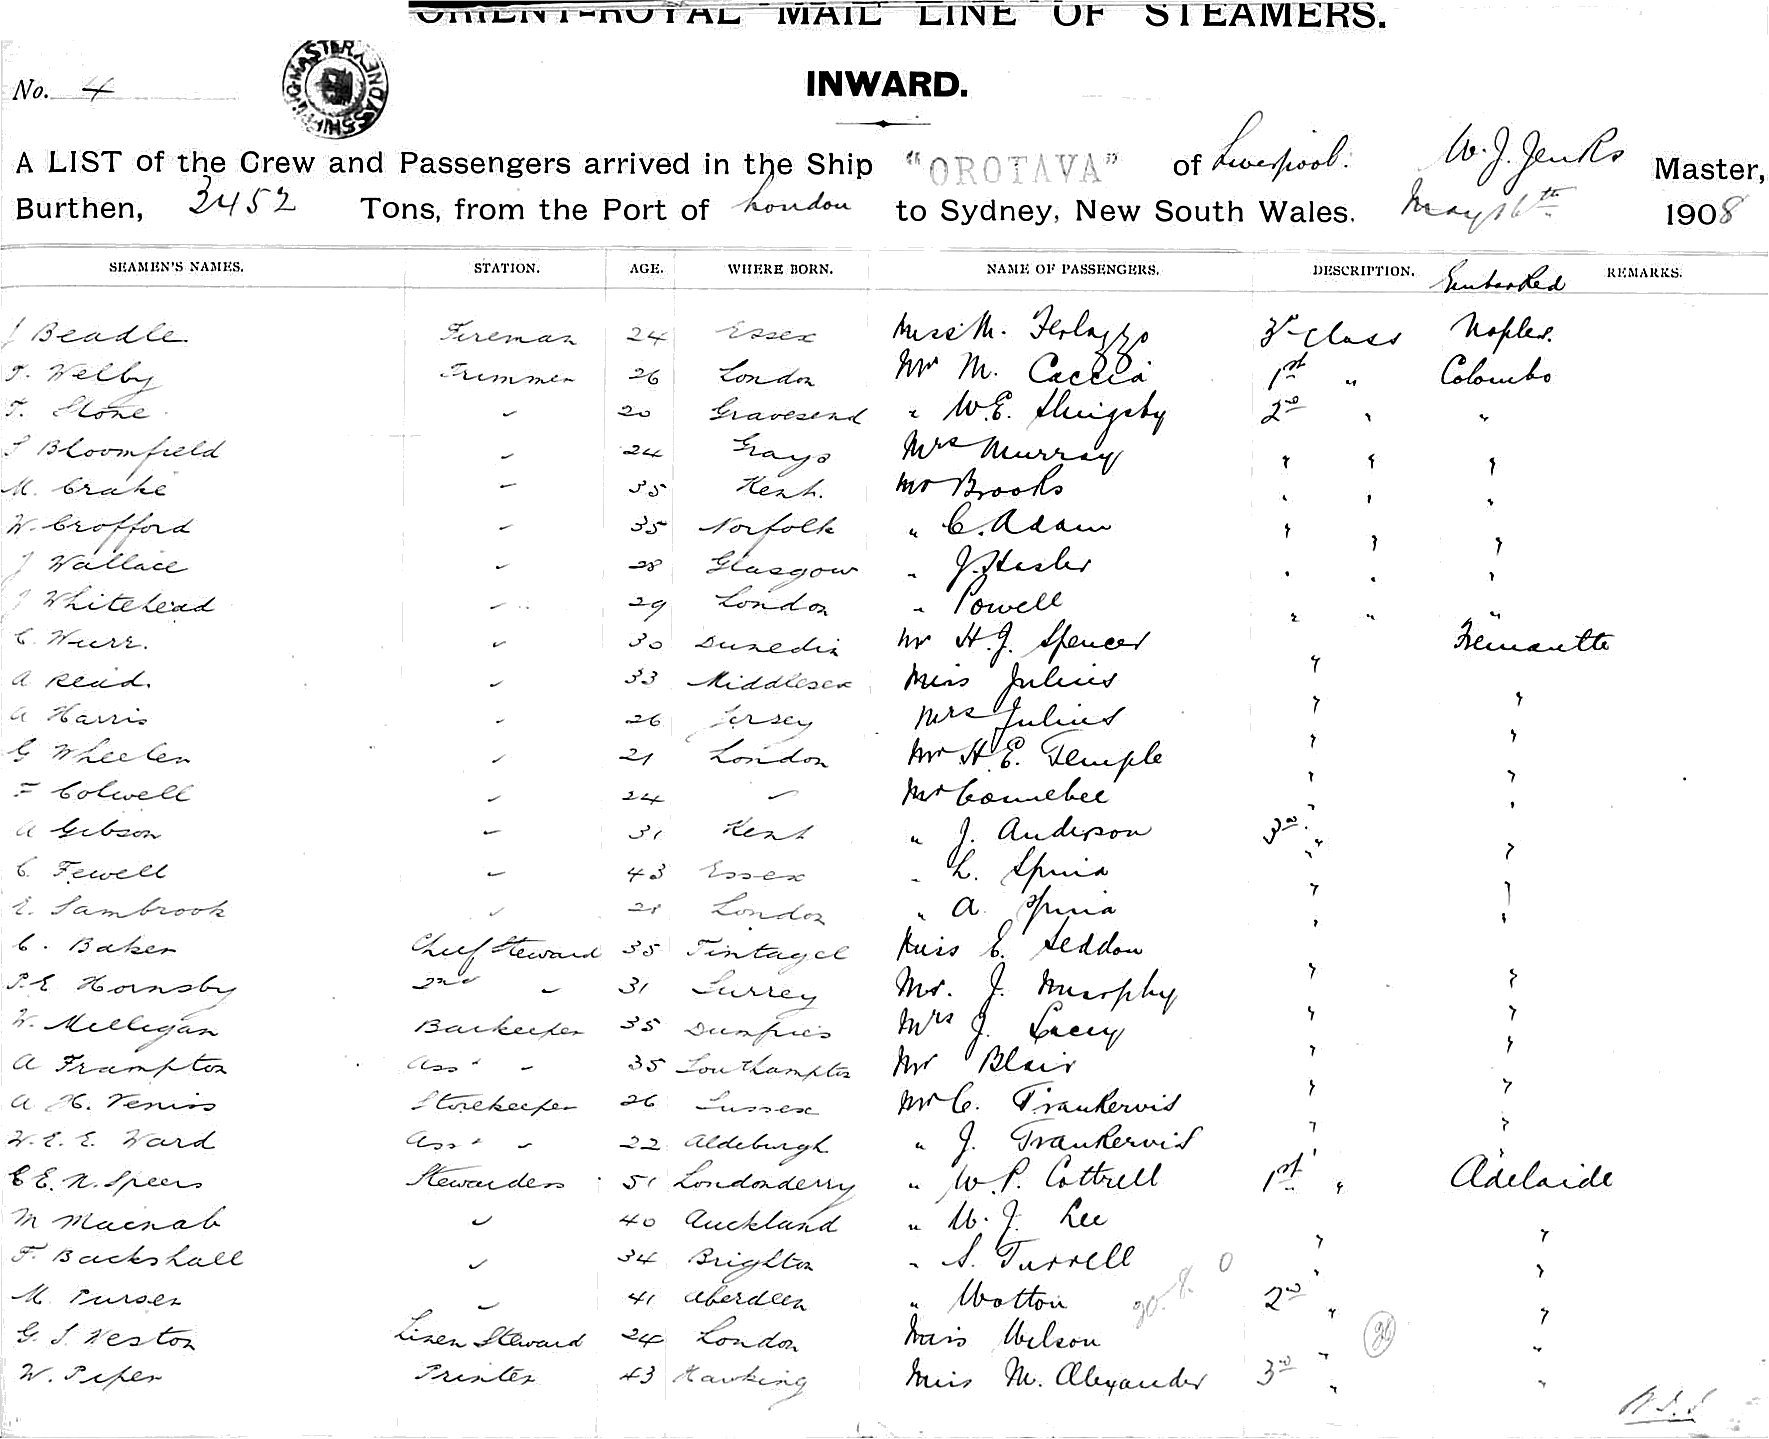 ORIENT-ROYAL MAIL LINE OF STEAMERS.
No. 4
INWARD.
A LIST of the Crew and Passengers arrived in the Ship "OROTAVA" of Liverpool. W. J. Jenks Master,
Burthen, 3452 Tons, from the Port of London to Sydney, New South Wales. May 16th 1908
SEAMEN'S NAMES. STATION. AGE. WHERE BORN. NAME OF PASSENGERS. DESCRIPTION. Embarked REMARKS.
J Beadle Fireman 24 Essex Miss M. Ferlazzo 3rd Class Naples.
F. Welby Trimmer 26 London Mr M. Caccia 1st " Colombo
F. Stone " 20 Gravesend " W.E. Slingsby 2nd " "
S Bloomfield " 24 Grays Mrs Murray " " "
M. Crake " 35 Kent. Mr Brooks " " "
W. Crofford " 35 Norfolk " C. Adam " " "
J Wallace " 28 Glasgow " J. Hasler " " "
J Whitehead " 29 London " Powell " " "
C. Wurr. " 30 Dunedin Mr H. J. Spencer " Fremantle
A Read. " 33 Middlesex Miss Julius " "
A Harris " 26 Jersey Mrs Julius " "
G Wheeler " 21 London Mr H. E. Temple " "
F Colwell " 24 " Mr " "
A Gibson " 31 Kent " J. Anderson 3rd " "
C. Fewell " 43 Essex " L. Spina " "
E. Sambrook " 21 London " A. Spina " "
C. Baker Chief Steward 35 Tintagel Miss E. Seddon " "
P.E Hornsby 2nd " 31 Surrey Mr. J. Murphy " "
W. Milligan Barkeeper 35 Dumfries Mrs J. Lacey " "
A Frampton Asst " 35 Southampton Mr Blair " "
A H. Veniss Storekeeper 26 Sussex Mr C. Trankervis " "
W. E. E. Ward Asst " 22 Aldeburgh " J. Trankervis " "
C E. N. Speers Stewardess 51 Londonderry " W. P. Cottrell 1st " Adelaide
M Macnab " 40 Auckland " W. J. Lee " "
F. Backshall " 34 Brighton " S. Turrell " "
M. Purser " 41 Aberdeen " Wotton 2nd " "
G. S. Weston Linen Steward 24 London Miss Wilson " "
W. Piper Printer 43 Hawking Miss M. Alexander 3rd " "